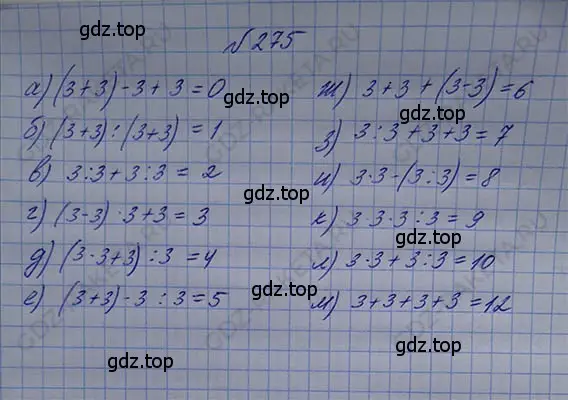 gdz.top
№ 275
а) (3+3)-3+3=0
gdz.top
б) (3+3):(3+3)=1
в) 3:3+3:3=2
г) (3-3)·3+3=3
д) (3·3+3):3=4
е) (3+3)-3:3=5
ж) 3+3+(3-3)=6
з) 3:3+3+3=7
и) 3·3-(3:3)=8
gdz.top
к) 3·3·3:3=9
gdz.top
л) 3·3+3:3=10
м) 3+3+3+3=12
gdz.top
gdz.top